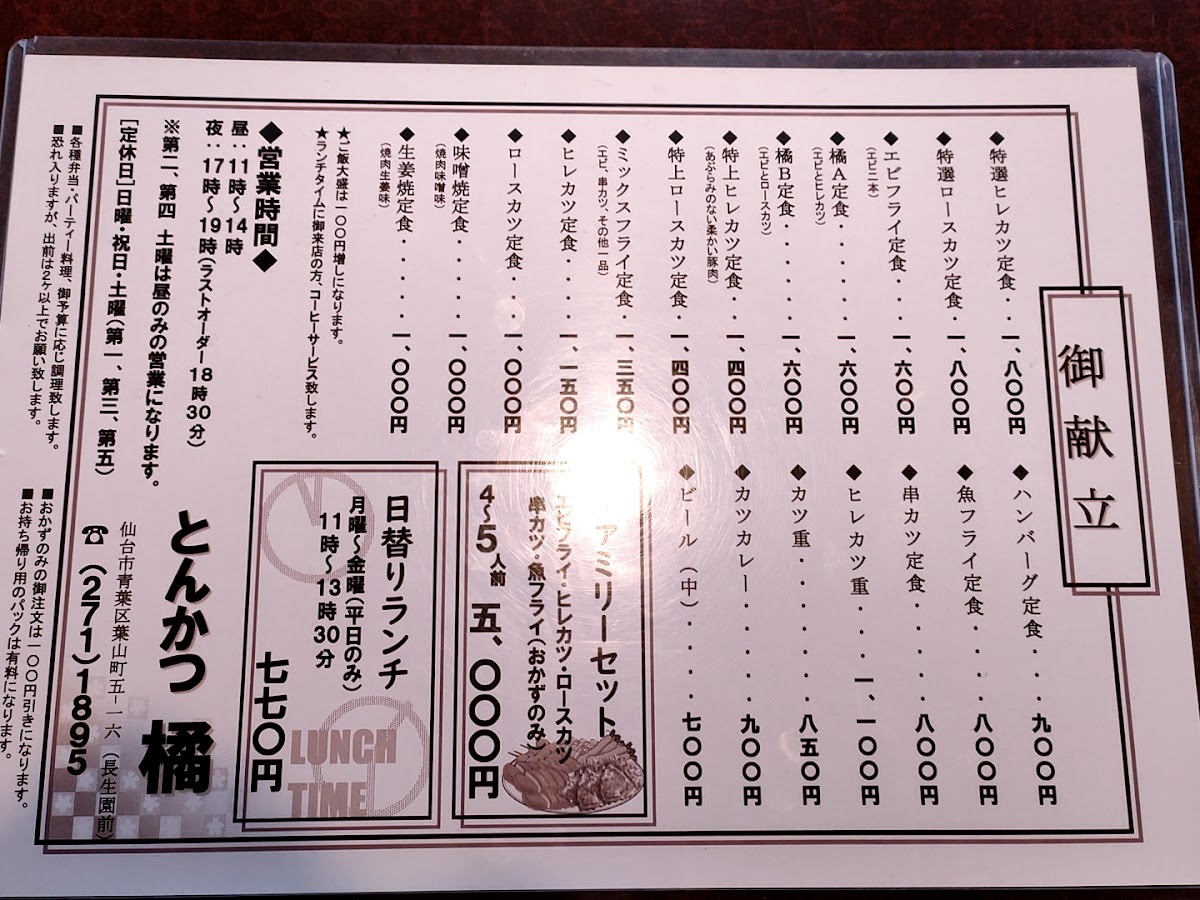 御献立
◆特選ヒレカツ定食・・一、八〇〇円
◆特選ロースカツ定食・一、八〇〇円
◆エビフライ定食・・・一、六〇〇円
(エビ二本)
◆橘A定食・・・・・・一、六〇〇円
(エビとヒレカツ)
◆橘B定食・・・・・・一、六〇〇円
(エビとロースカツ)
◆特上ヒレカツ定食・・一、四〇〇円
(あぶらみのない柔かい豚肉)
◆特上ロースカツ定食・一、四〇〇円
◆ミックスフライ定食・一、三五〇円
(エビ、串カツ、その他一品)
◆ヒレカツ定食・・・・一、一五〇円
◆ロースカツ定食・・・一、〇〇〇円
◆味噌焼定食・・・・・一、〇〇〇円
(焼肉味噌味)
◆生姜焼定食・・・・・一、〇〇〇円
(焼肉生姜味)
★ご飯大盛は一〇〇円増しになります。
★ランチタイムに御来店の方、コーヒーサービス致します。
◆ハンバーグ定食・・・九〇〇円
◆魚フライ定食・・・・八〇〇円
◆串カツ定食・・・・・八〇〇円
◆ヒレカツ重・・・一、一〇〇円
◆カツ重・・・・・・・八五〇円
◆カツカレー・・・・・九〇〇円
◆ビール(中)・・・・・七〇〇円
ァミリーセット
エビフライ・ヒレカツ・ロースカツ
串カツ・魚フライ(おかずのみ)
4〜5人前 五、〇〇〇円
日替りランチ
月曜〜金曜(平日のみ)
11時〜13時30分
七七〇円
LUNCH
TIME
◆営業時間◆
昼:11時〜14時
夜:17時〜19時(ラストオーダー18時30分)
※第二、第四 土曜は昼のみの営業になります。
[定休日]日曜・祝日・土曜(第一、第三、第五)
とんかつ 橘
仙台市青葉区葉山町五−一六(長生園前)
☎(271)1895
■各種弁当・パーティー料理、御予算に応じ調理致します。
■恐れ入りますが、出前は2ヶ以上でお願い致します。
■おかずのみの御注文は一〇〇円引きになります。
■お持ち帰り用のパックは有料になります。